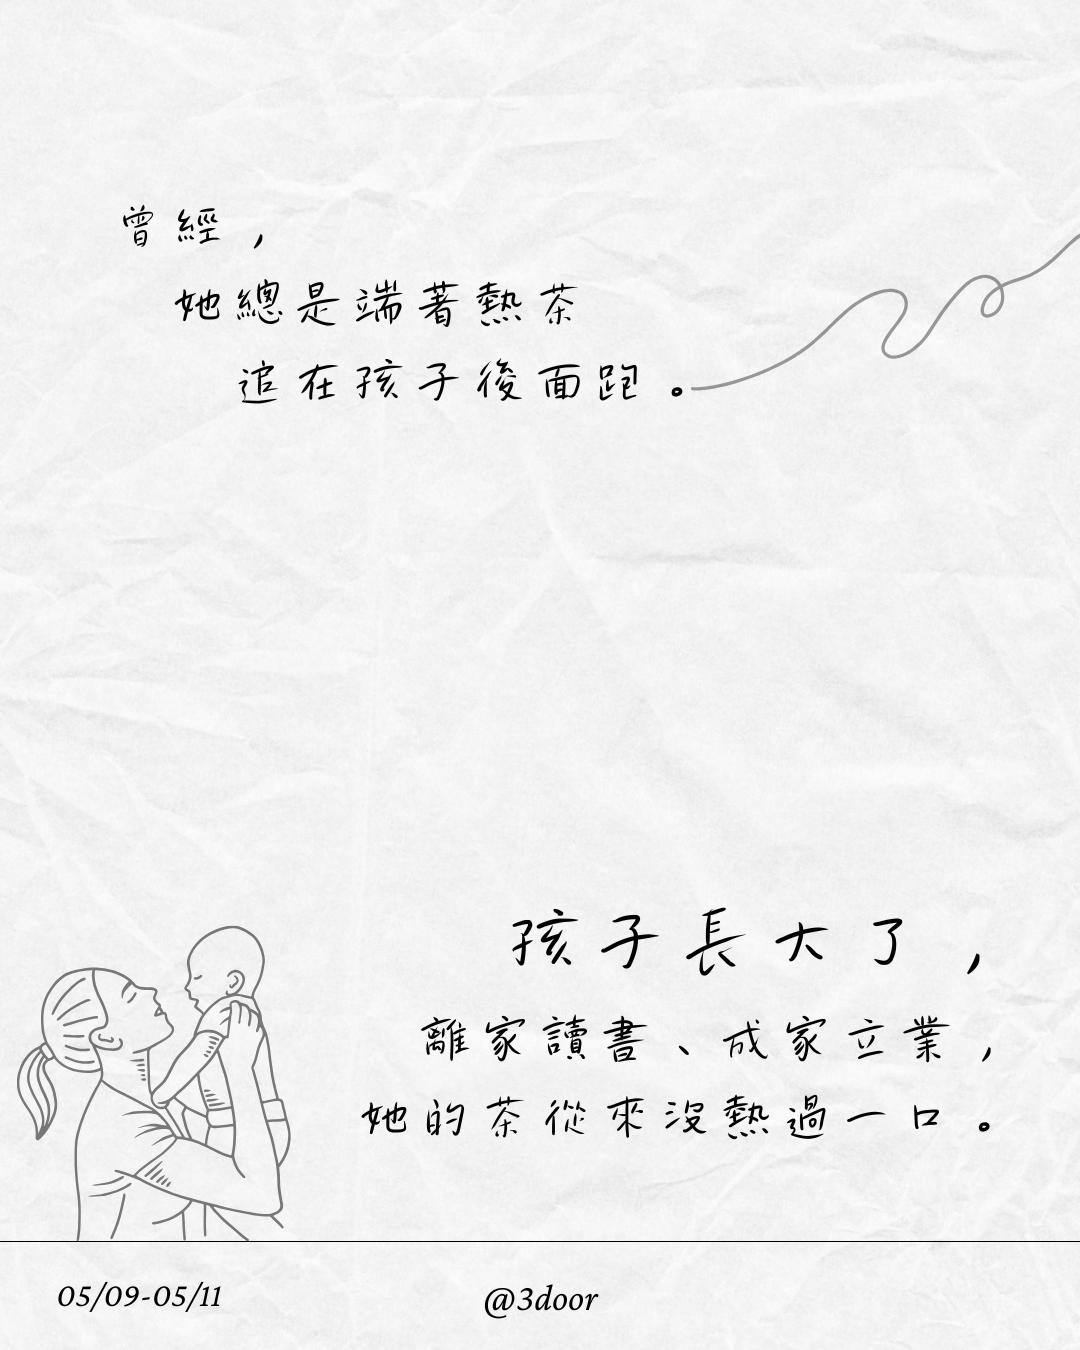 曾經，
她總是端著熱茶
追在孩子後面跑。
孩子長大了，
離家讀書、成家立業，
她的茶從來沒熱過一口。
05/09-05/11
@3door